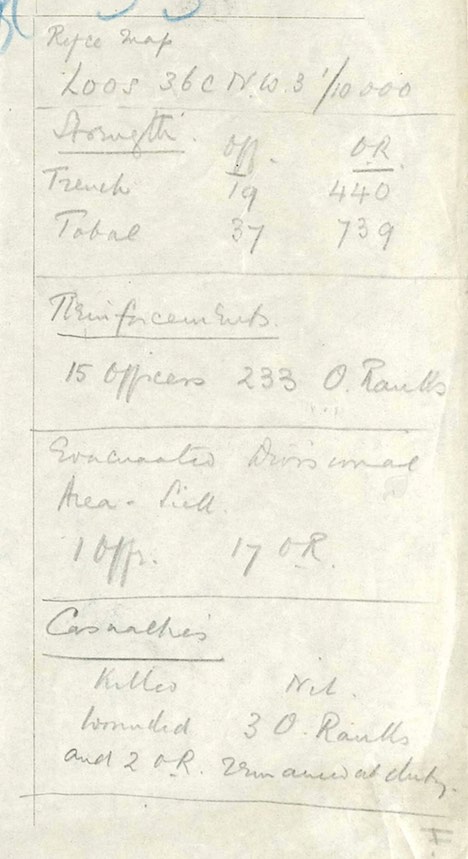 Refce Map
Loos 36C N.W. 3 1/10 000
Strength Off. O.R.
Trench 19 440
Total 37 739
Reinforcements.
15 Officers 233 O. Ranks
Evacuated Divisional
Area - Sick
1 Offr. 17 O.R.
Casualties
Killed Nil.
Wounded 3 O. Ranks
and 2 O.R. remained at duty.